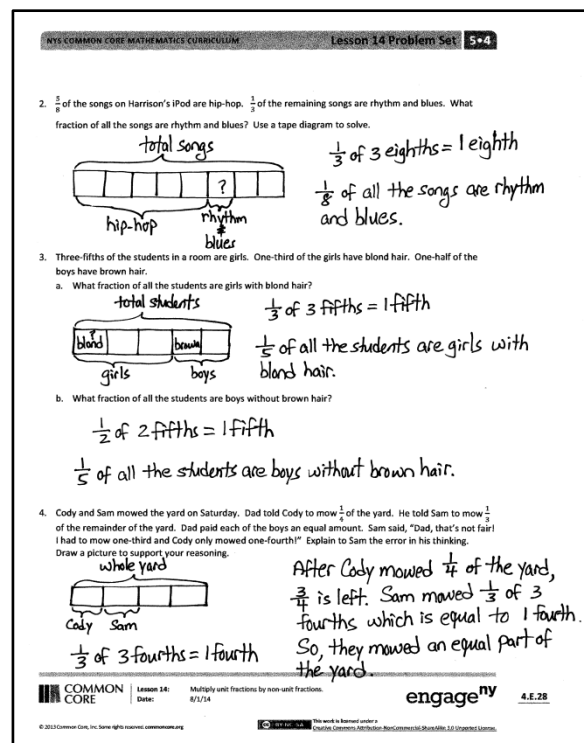 NYS COMMON CORE MATHEMATICS CURRICULUM
Lesson 14 Problem Set 5•4
2. 5/8 of the songs on Harrison's iPod are hip-hop. 1/3 of the remaining songs are rhythm and blues. What
fraction of all the songs are rhythm and blues? Use a tape diagram to solve.
total songs
?
hip-hop
rhythm
&
blues
1/3 of 3 eighths = 1 eighth
1/8 of all the songs are rhythm
and blues.
3. Three-fifths of the students in a room are girls. One-third of the girls have blond hair. One-half of the
boys have brown hair.
a. What fraction of all the students are girls with blond hair?
total students
?
blond
brown
girls
boys
1/3 of 3 fifths = 1 fifth
1/5 of all the students are girls with
blond hair.
b. What fraction of all the students are boys without brown hair?
1/2 of 2 fifths = 1 fifth
1/5 of all the students are boys without brown hair.
4. Cody and Sam mowed the yard on Saturday. Dad told Cody to mow 1/4 of the yard. He told Sam to mow 1/3
of the remainder of the yard. Dad paid each of the boys an equal amount. Sam said, "Dad, that's not fair!
I had to mow one-third and Cody only mowed one-fourth!" Explain to Sam the error in his thinking.
Draw a picture to support your reasoning.
whole yard
Cody Sam
1/3 of 3 fourths = 1 fourth
After Cody mowed 1/4 of the yard,
3/4 is left. Sam mowed 1/3 of 3
fourths which is equal to 1 fourth.
So, they mowed an equal part of
the yard.
COMMON
CORE
Lesson 14: Multiply unit fractions by non-unit fractions.
Date: 8/1/14
engageny
4.E.28
© 2013 Common Core, Inc. Some rights reserved. commoncore.org
CC BY-NC-SA
This work is licensed under a
Creative Commons Attribution-NonCommercial-ShareAlike 3.0 Unported License.